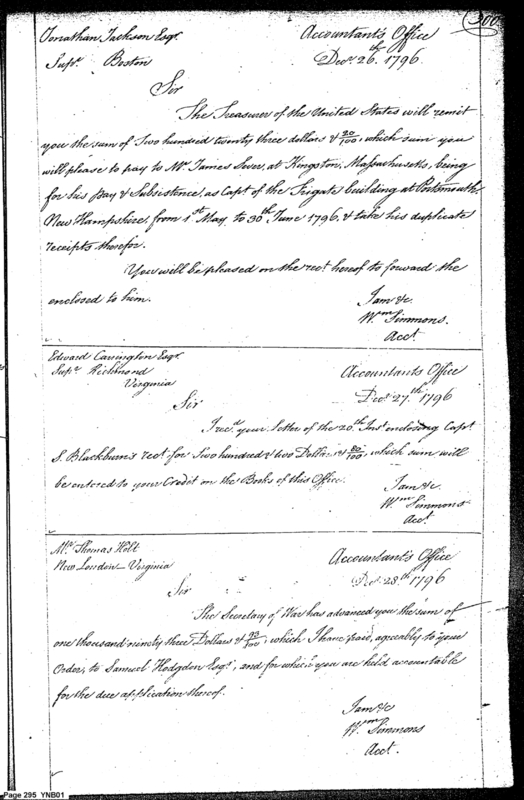 300
Jonathan Jackson Esqr.
Supr. Boston
Accountant's Office
Decr. 26th. 1796.
Sir
The Treasurer of the United States will remit
you the sum of Two hundred twenty three dollars & 20/100, which sum you
will please to pay to Mr. James Sever, at Kingston, Massachusetts, being
for his Pay & Subsistence, as Capt of the Frigate building at Portsmouth
New Hampshire, from 1st May, to 30th June 1796, & take his duplicate
receipts therefor.
You will be pleased on the rect. hereof to forward the
enclosed to him.
I am &c.
Wm Simmons.
Acct.
Edward Carrington Esqr.
Supr. Richmond
Virginia
Accountant's Office
Decr. 27th. 1796
Sir
I recd. your letter of the 20th. Inst. enclosing Capt.
S. Blackburn's rect. for Two hundred & two Dollars & 80/100, which sum will
be entered to your Credit on the Books of this Office.
I am &c.
Wm Simmons
Acct.
Mr. Thomas Holt
New London - Virginia
Accountant's Office
Decr. 28th. 1796
Sir
The Secretary of War has advanced you the sum of
one thousand ninety three Dollars & 93/100, which I have paid, agreeably to your
Order, to Samuel Hodgdon Esqr., and for which you are held accountable
for the due application thereof.
I am &c
Wm Simmons
Acct.
Page 295 YNB01